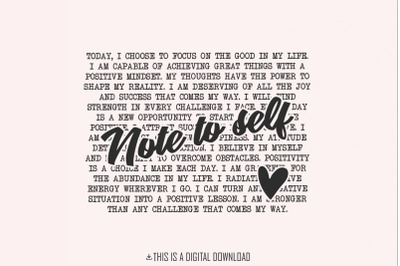 TODAY, I CHOOSE TO FOCUS ON THE GOOD IN MY LIFE.
I AM CAPABLE OF ACHIEVING GREAT THINGS WITH A
POSITIVE MINDSET. MY THOUGHTS HAVE THE POWER TO
SHAPE MY REALITY. I AM DESERVING OF ALL THE JOY
AND SUCCESS THAT COMES MY WAY. I WILL FIND
STRENGTH IN EVERY CHALLENGE I FACE. DAY
IS A NEW OPPORTUNITY TO START
Note to self
I BELIEVE IN MYSELF
AND TO OVERCOME OBSTACLES. POSITIVITY
IS A CHOICE I MAKE EACH DAY. I AM FOR
THE ABUNDANCE IN MY LIFE. I
ENERGY WHEREVER I GO. I CAN TURN
SITUATION INTO A POSITIVE LESSON. I AM
THAN ANY CHALLENGE THAT COMES MY WAY.
THIS IS A DIGITAL DOWNLOAD